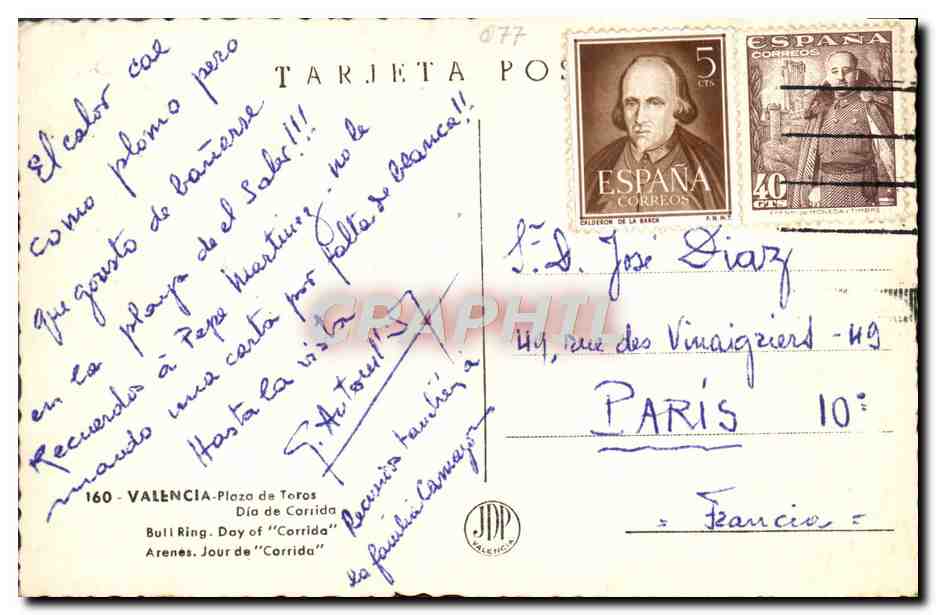 077
TARJETA POS
5
CTS
ESPAÑA
CORREOS
CALDERON DE LA BARCA
F.N.M.T.
ESPAÑA
CORREOS
40
CTS
El calor cae
como plomo pero
que gousto de bañarse
en la playa de el Saler!!!
Recuerdos á Pepe Martinez no le
mando una carta por falta de blanca!!
Hasta la vista
Recuerdos tambien á
la familia
Sr. D. José Diaz
49, rue des Vinaigriers - 49
PARÍS 10e
= Francia =
160 - VALENCIA - Plaza de Toros
Día de Corrida
Bull Ring. Day of "Corrida"
Arenes. Jour de "Corrida"
JDP
VALENCIA
CPAPHIL